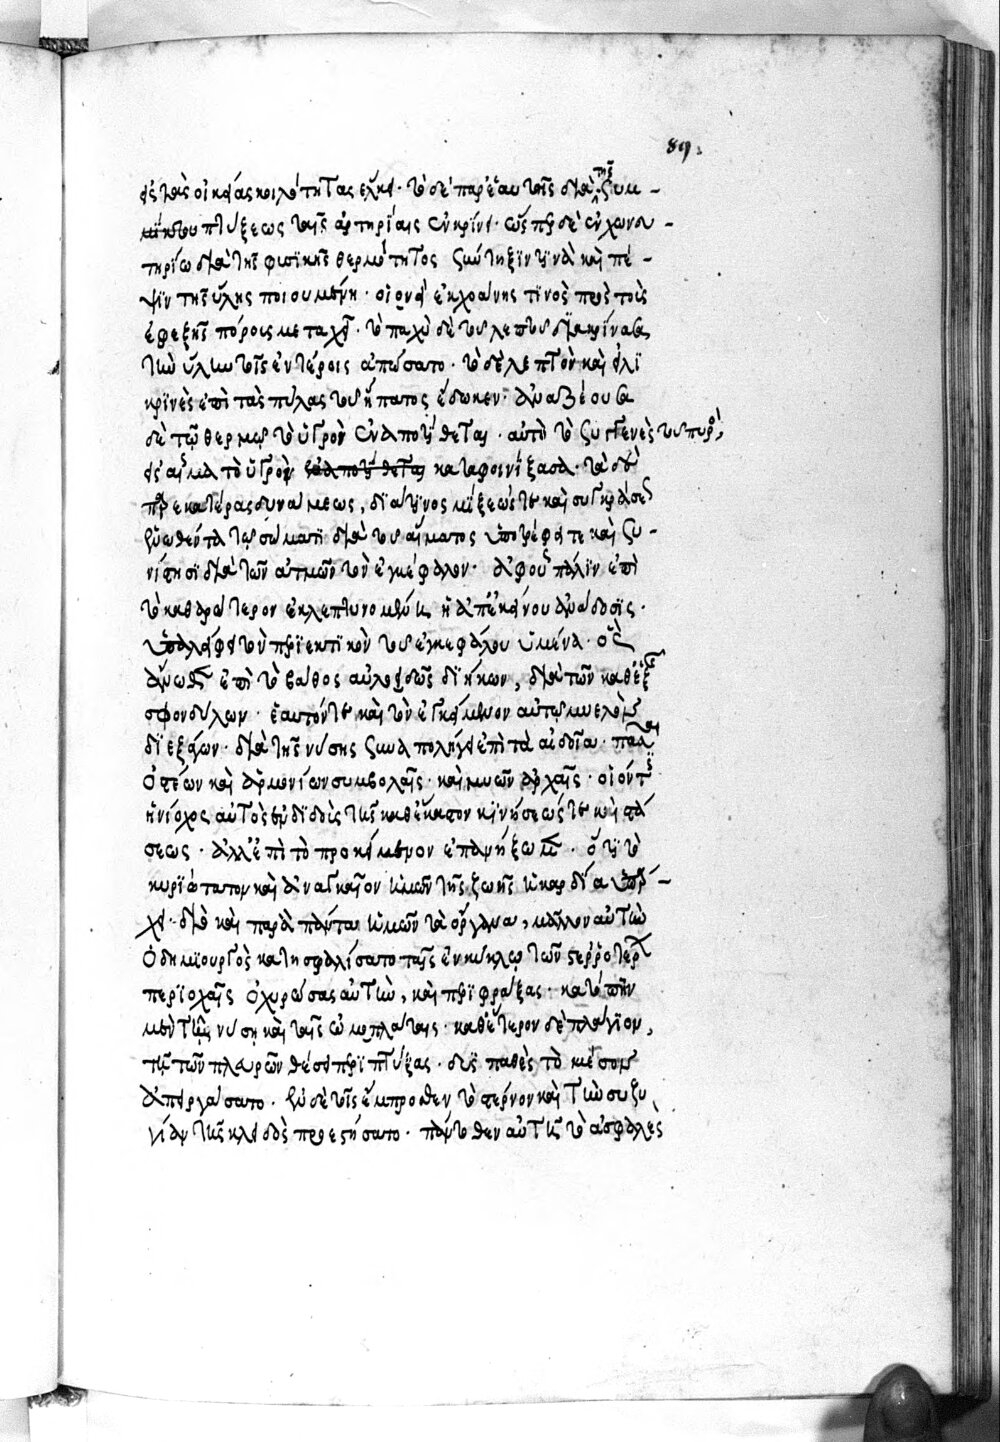 89
εἰς τὰς οἰκείας κοιλότητας ἕλκει· τὸ δὲ παρέξαυτῆς διὰ τῆς συμ-
πτύξεως ταῖς ἀρτηρίαις ἐγκρίνει· ὥσπερ δὲ ἐν χωνευ-
τηρίῳ διὰ τῆς φυσικῆς θερμότητος σύντηξιν τινὰ καὶ πέ-
ψιν τῆς ὕλης ποιουμένη· οἱονεὶ ἐκ χοάνης τινὸς πρὸς τοὺς
ἐφεξῆς πόρους μεταχεῖ· τὸ παχὺ δὲ τοῦ λεπτοῦ διακρίνασα
τὴν ὕλην τοῖς ἐντέροις ἀπώσατο· τὸ δὲ λεπτὸν καὶ εἰλι
κρινὲς ἐπὶ τὰς πύλας τοῦ ἥπατος ἔδωκεν· ἀναζέουσα
δὲ τῷ θερμῷ τὸ ὑγρὸν ἐναποτίθεται· αὐτὸ τὸ συγγενὲς τοῦ πυρὸς,
εἰς αἷμα τὸ ὑγρὸν καταφοινίξασα· τὰ δὲ
παρ' ἑκατέρας δυνάμεως, διά τινος μίξεώς τε καὶ συγκράσεως
ἑνωθέντα τῷ σώματι διὰ τοῦ αἵματος ὑποτρέφει τε καὶ συ-
νίστησι διὰ τῶν ἀτμῶν τὸν ἐγκέφαλον· ἀφ' οὗ πάλιν ἐπὶ
τὸ καθαρώτερον ἐκλεπτυνομένη ἡ ἀπ' ἐκείνου ἀνάδοσις·
ὑπαλείφει τὸν περιεκτικὸν τοῦ ἐγκεφάλου ὑμένα· ὃς
ἄνωθεν ἐπὶ τὸ βάθος αὐλοειδῶς διήκων, διὰ τῶν καθεξῆς
σφονδύλων· ἑαυτόν τε καὶ τὸν ἐγκείμενον αὐτῷ μυελὸν
διεξάγων· διὰ τῆς συναπολήγει ἐπὶ τὰ
ὀστέων καὶ ἁρμονιῶν συμβολαῖς· καὶ μυῶν ἀρχαῖς· οἷόν τις
ἡνίοχος αὐτὸς ἐνδιδοὺς τῆς καθέκαστον κινήσεώς τε καὶ στά
σεως· ἀλλ' ἐπὶ τὸ προκείμενον ἐπανήξωμεν· ὅτι τὸ
κυριώτατον καὶ ἀναγκαῖον ἡμῶν τῆς ζωῆς ἡ καρδία ὑπάρ-
χει· διὸ καὶ παρὰ πάντα ἡμῶν τὰ ὄργανα, μᾶλλον αὐτὴν
ὁ δημιουργὸς κατησφαλίσατο ταῖς ἐν κύκλῳ τῶν στερροτέρων
περιοχαῖς ὀχυρώσας αὐτὴν, καὶ περιφράξας· κατόπιν
μὲν τῇ καὶ ταῖς ὠμοπλάταις· καθ' ἕτερον δὲ πλάγιον,
τῇ τῶν πλευρῶν θέσει περιπτύξας· δυσπαθὲς τὸ μέσον
ἀπειργάσατο· ἐν δὲ τοῖς ἔμπροσθεν τὸ στέρνον καὶ τὴν συζυ
γίαν τῆς κλειδὸς προεστήσατο· πάντοθεν αὐτῆς τὸ ἀσφαλὲς